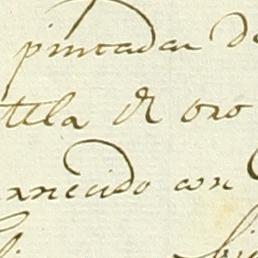 pintadas de
tela de oro
arnecido con